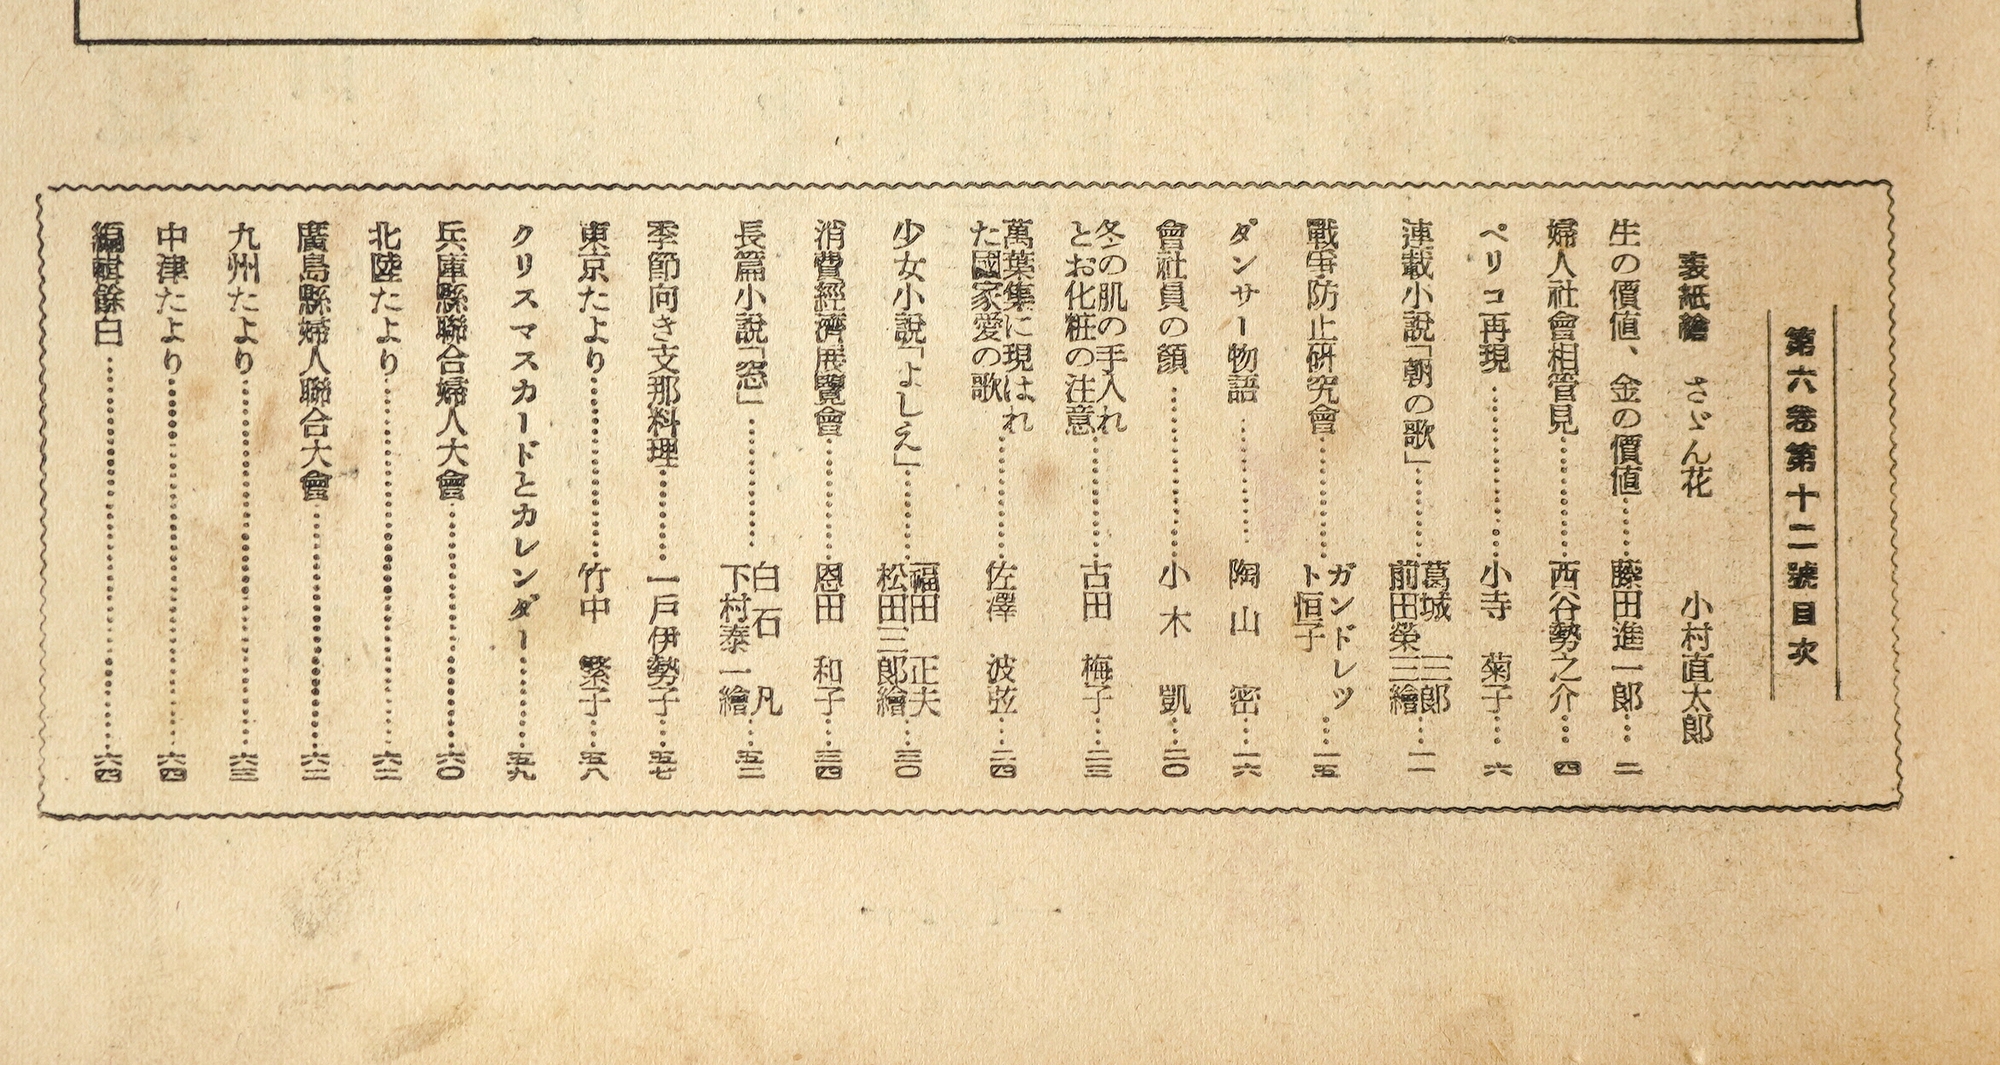 第六卷第十二號目次
表紙繪　さゞん花　小村直太郎
生の價値、金の價値…………藤田進一郎……二
婦人社會相管見…………西谷勢之介……四
ペリコ再現…………小寺　菊子……六
連載小說「朝の歌」…………葛城　三郎
前田榮三繪……一一
戰爭防止硏究會…………ガンドレツ
ト恒子……一五
ダンサー物語…………陶山　密……一六
會社員の顏…………小木　凱……二〇
冬の肌の手入れ
とお化粧の注意…………古田　梅子……二三
萬葉集に現はれ
た國家愛の歌…………佐澤　波弦……二四
少女小說「よしえ」…………福田　正夫
松田三郞繪……三〇
消費經濟展覽會…………恩田　和子……三四
長篇小說「窓」…………白石　凡
下村泰一繪……五二
季節向き支那料理…………一戶伊勢子……五七
東京たより…………竹中　繁子……五八
クリスマスカードとカレンダー…………五九
兵庫縣聯合婦人大會…………六〇
北陸たより…………六二
廣島縣婦人聯合大會…………六二
九州たより…………六三
中津たより…………六四
編輯餘白…………六四